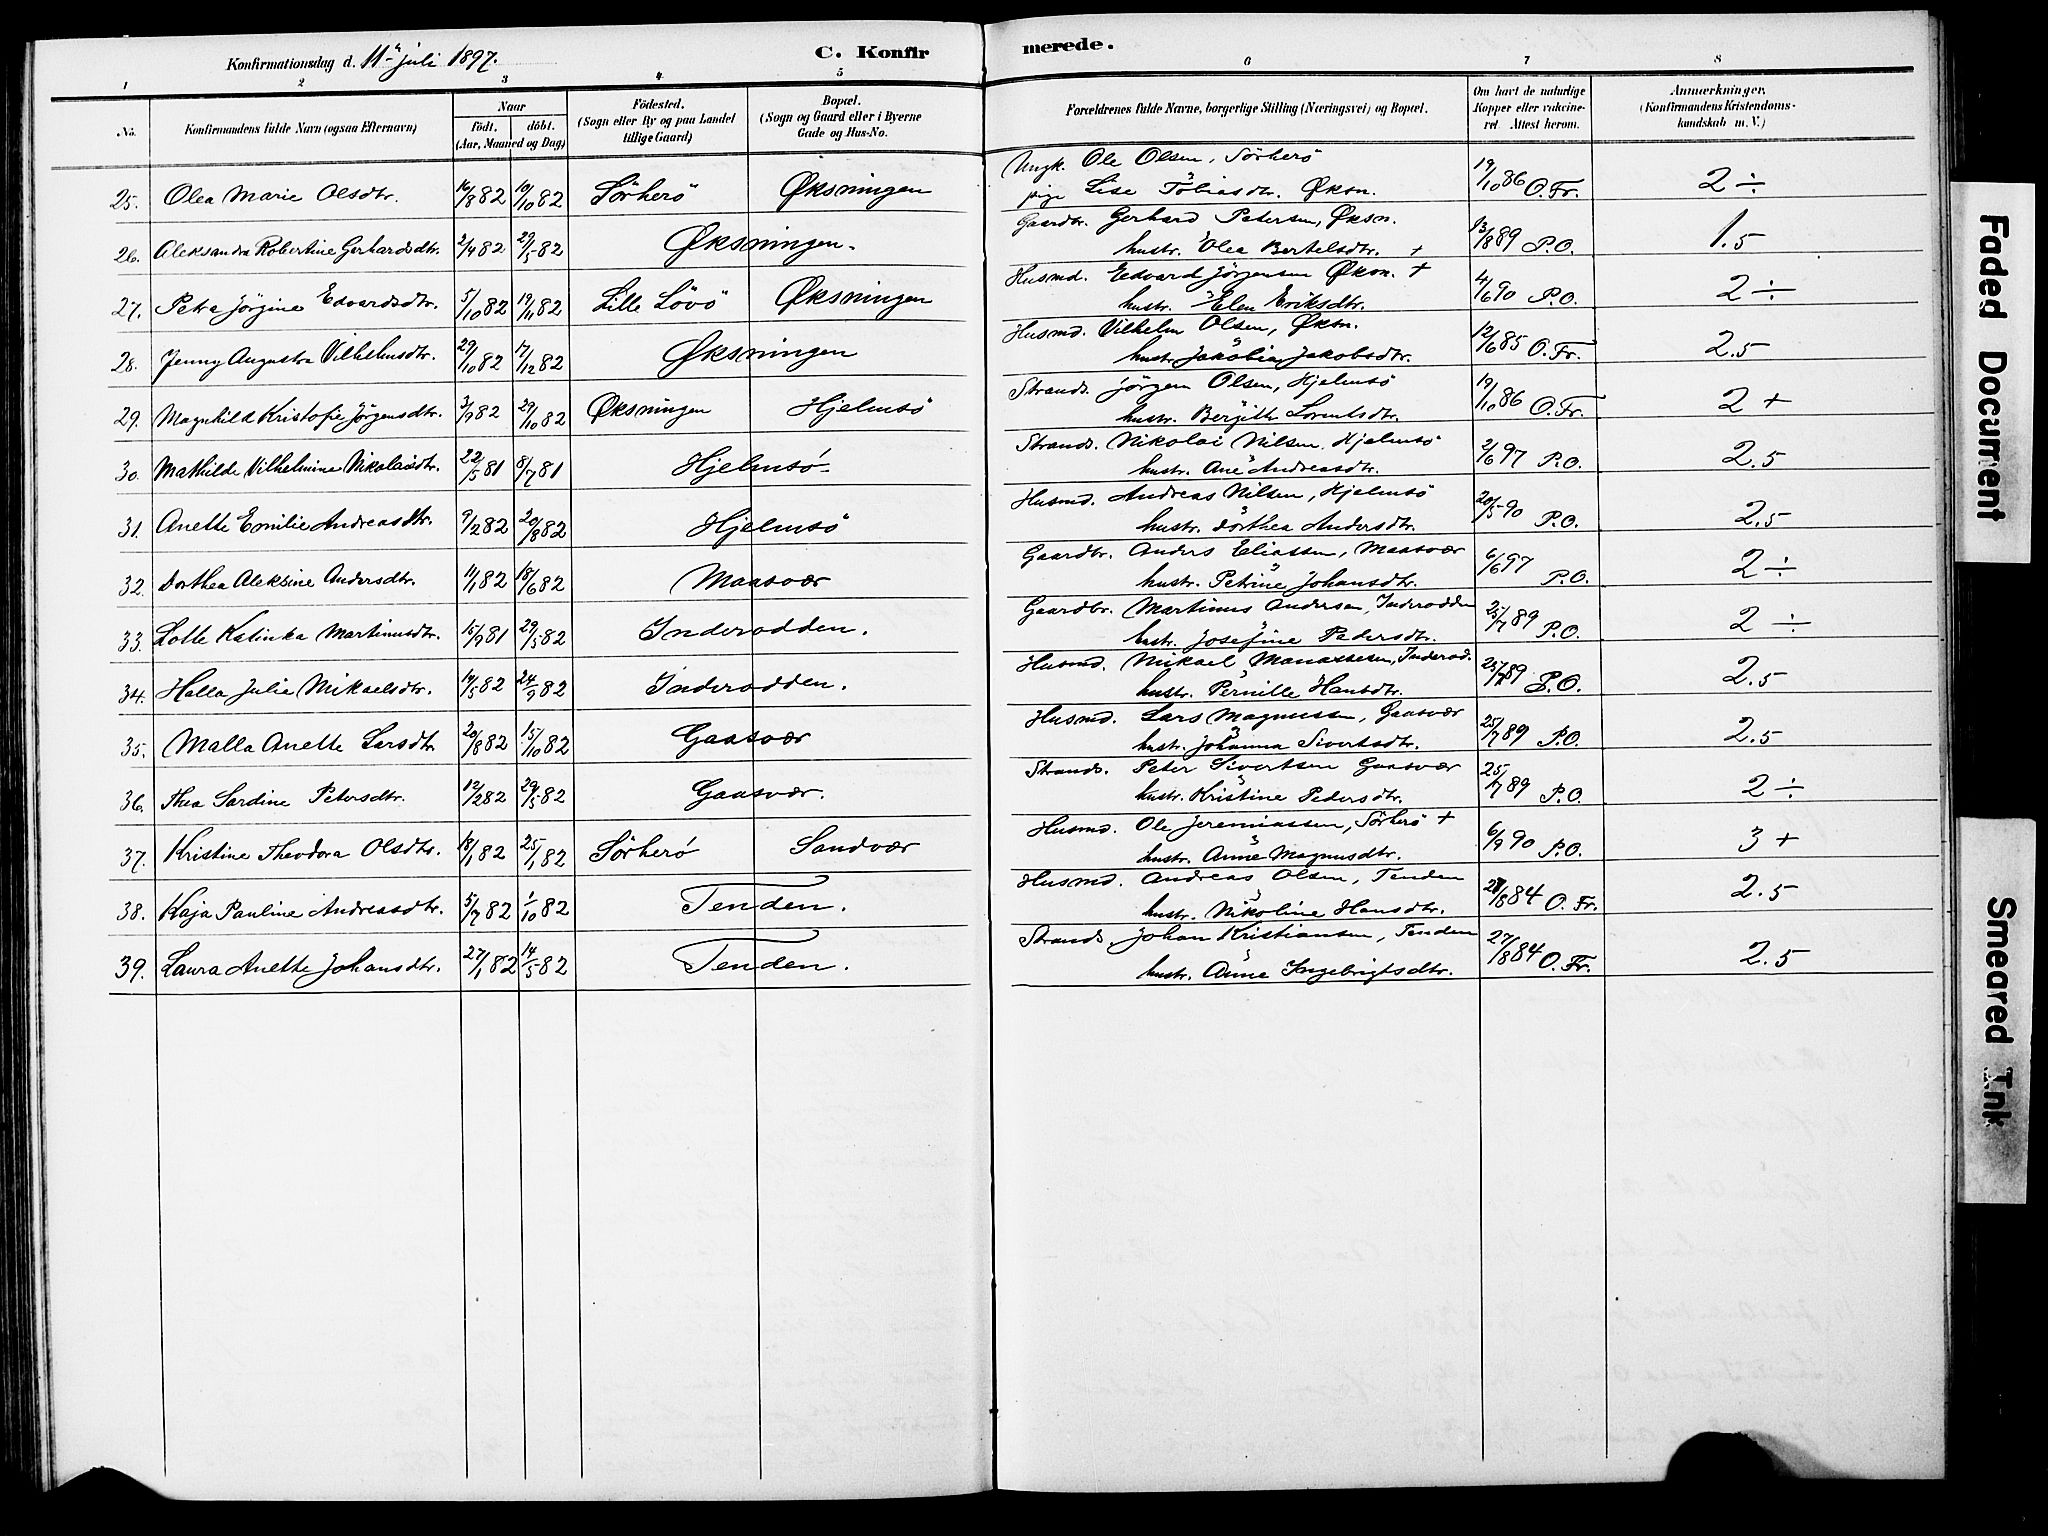 Konfirmationsdag d. 11te juli 1897.
C. Konfirmerede.
1 2 3 4 5 6 7 8
No.
Konfirmandens fulde Navn (ogsaa Efternavn)
Naar
födt. döbt.
(Aar, Maaned og Dag)
Födested.
(Sogn eller By og paa Landet
tillige Gaard)
Bopæl.
(Sogn og Gaard eller i Byerne
Gade og Hus-No.
Forældrenes fulde Navne, borgerlige Stilling (Næringsvei) og Bopæl.
Om havt de naturlige
Kopper eller vakcine-
ret. Attest herom.
Anmærkninger,
(Konfirmandens Kristendoms-
kundskab m. V.)
25. Olea Marie Olsdtr. 16/8 82 19/10 82 Sörherö Øksningen Ungk. Ole Olsen, Sörherö 19/10 86 O.Fr. 2 ÷
pige Lise Tobiasdtr. Øksn.
26. Aleksandra Robertine Gerhardsdtr. 2/4 82 29/5 82 Øksningen. Gaardbr. Gerhard Petersen, Øksn. 13/8 89 P.O. 1.5
hustr. Olea Bertelsdtr. +
27. Petra Jörgine Edvardsdtr. 5/10 82 19/11 82 Lille Lövö Øksningen Husmd. Edvard Jörgensen Øksn. + 4/6 90 P.O. 2 ÷
hustr. Elen Eriksdtr.
28. Jenny Augusta Vilhelmsdtr. 29/10 82 17/12 82 Øksningen Husmd. Vilhelm Olsen, Øksn. 12/6 85 O.Fr. 2.5
hustr. Jakobia Jakobsdtr.
29. Magnhild Kristofie Jörgensdtr. 3/9 82 29/10 82 Øksningen Hjelmsö Strands. Jörgen Olsen, Hjelmsö 19/10 86 O.Fr. 2 +
hustr. Bergitte Lorentsdtr.
30. Mathilde Vilhelmine Nikolaisdtr. 22/5 81 8/7 81 Hjelmsö Strands. Nikolai Nilsen, Hjelmsö 2/6 97 P.O. 2.5
hustr. Ane Andreasdtr.
31. Anette Emilie Andreasdtr. 9/2 82 20/8 82 Hjelmsö Husmd. Andreas Nilsen, Hjelmsö 20/5 90 P.O. 2.5
hustr. Dorthea Andersdtr.
32. Dorthea Aleksine Andersdtr. 11/1 82 18/6 82 Maasvær Gaardbr. Anders Eliassen, Maasvær 6/6 97 P.O. 2 ÷
hustr. Petrine Johansdtr.
33. Lotte Katinka Martinusdtr. 15/9 81 29/5 82 Inderodden. Gaardbr. Martinus Andersen, Inderodden 25/7 89 P.O. 2 ÷
hustr. Josefine Pedersdtr.
34. Halla Julie Mikaelsdtr. 14/5 82 24/9 82 Inderodden. Husmd. Mikael Manassesen, Inderod. 25/7 89 P.O. 2.5
hustr. Pernille Hansdtr.
35. Malla Anette Larsdtr 20/8 82 15/10 82 Gaasvær Husmd. Lars Magnussen, Gaasvær 25/7 89 P.O. 2.5
hustr. Johanna Sivertsdtr.
36. Thea Sardine Petersdtr. 12/2 82 29/5 82 Gaasvær. Strands. Peter Sivertsen Gaasvær 25/7 89 P.O. 2 ÷
hustr. Kristine Pedersdtr.
37. Kristine Theodora Olsdtr. 18/1 82 25/1 82 Sörherö Sandvær Husmd. Ole Jeremiassen, Sörherö + 6/9 90 P.O. 3 +
hustr. Anne Magnusdtr.
38. Kaja Pauline Andreasdtr. 5/7 82 1/10 82 Tenden. Husmd. Andreas Olsen, Tenden 84 O.Fr. 2.5
hustr. Nikoline Hansdtr.
39. Laura Anette Johansdtr. 27/1 82 14/5 82 Tenden. Strands. Johan Kristiansen, Tenden 27/8 84 O.Fr. 2.5
hustr. Anne Ingebrigtsdtr.
Faded Document
Smeared Ink